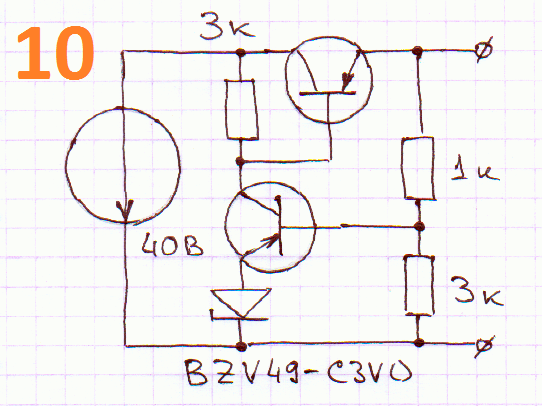 10
3к
1к
40В
3к
BZV49-C3V0